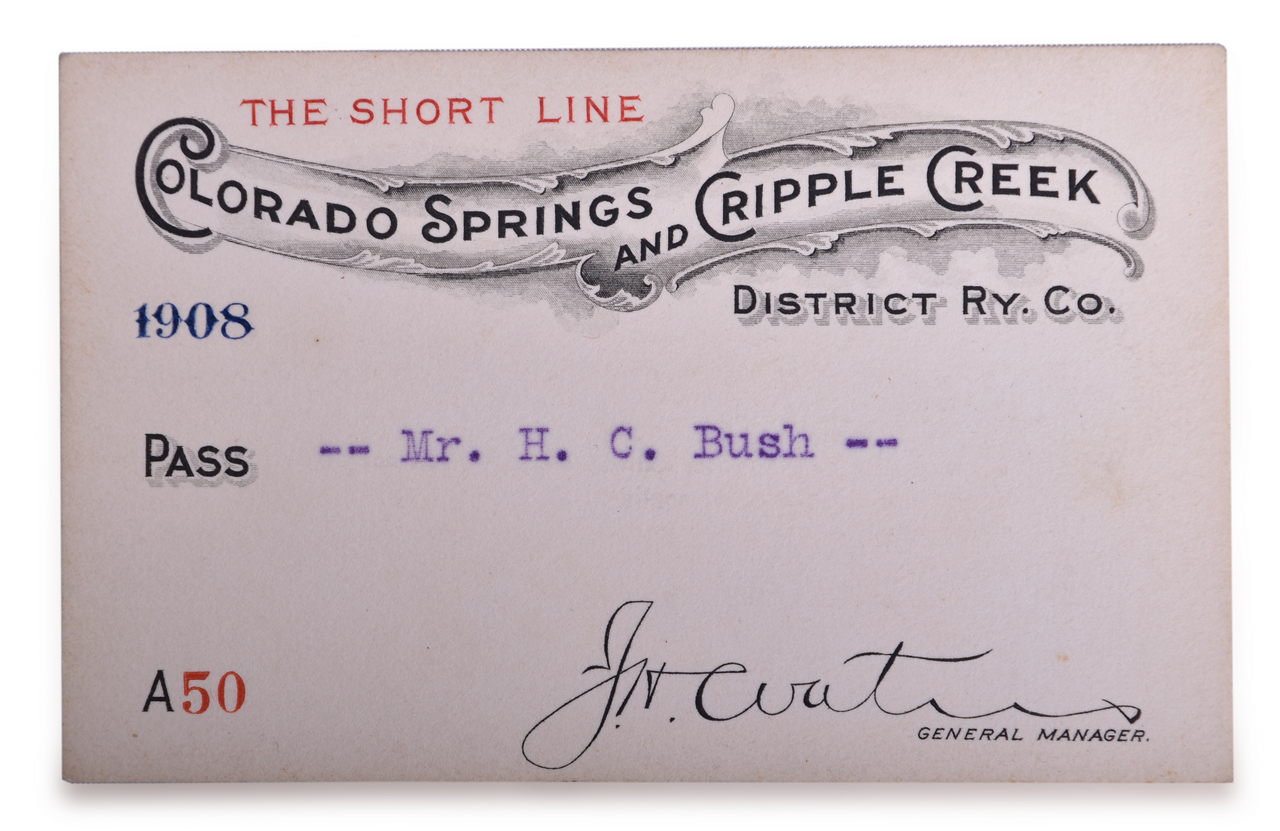 THE SHORT LINE
COLORADO SPRINGS AND CRIPPLE CREEK
DISTRICT RY. CO.
1908
PASS -- Mr. H. C. Bush --
A50
J. H. Waters
GENERAL MANAGER.